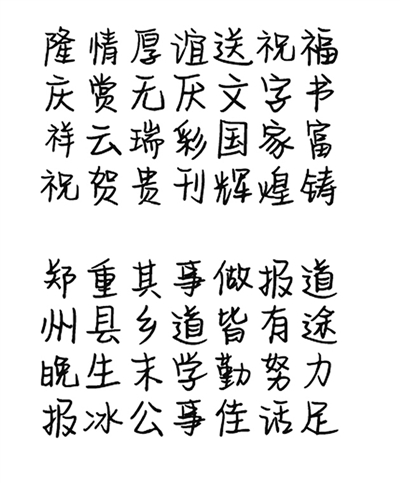 隆情厚谊送祝福
庆赏无厌文字书
祥云瑞彩国家富
祝贺贵刊辉煌铸
郑重其事做报道
州县乡道皆有途
晚生末学勤努力
报冰公事佳话足